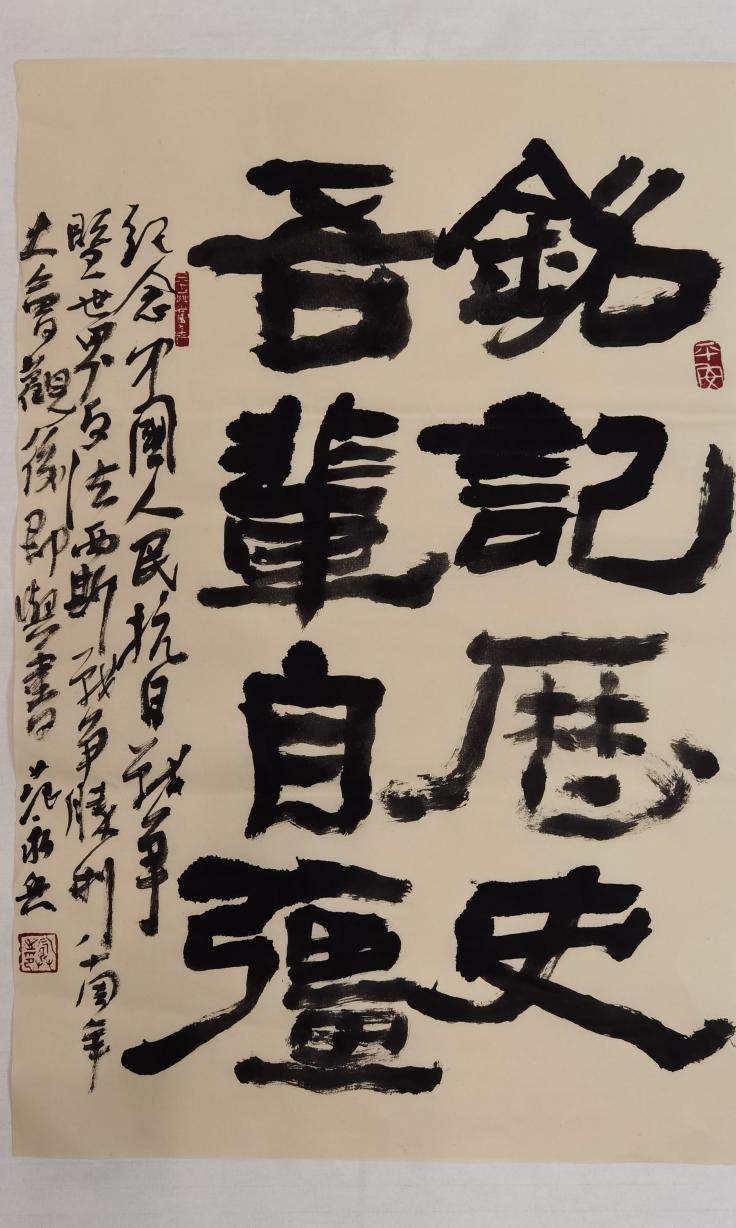 銘記歷史
吾輩自彊
紀念中國人民抗日戰爭
暨世界反法西斯戰爭勝利八十周年
大會觀後即興書 范
平安